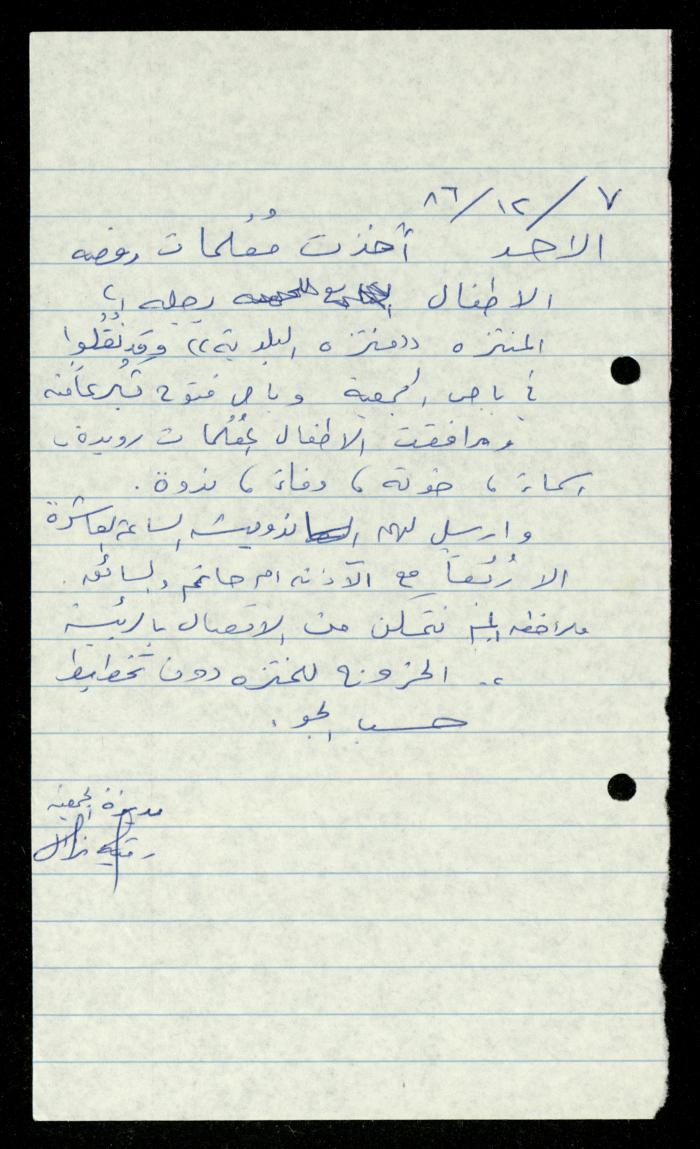 ٧/١٢/٨٦
الاحد أخذت مُعُلمات روضه
الاطفال رحله الى
المنتزه ((منتزه البلدية)) وقد نُقُلوا
في باص الجمعية وباص فتوح تُبرعاً منه
ومرافقت الاطفال المُعُلمات رويدة،
اسماء، خوله، وفاء، ندوة.
وارسل لهم الساندويش الساعة العاشرة
الا رُبُعاً مع الآذنه ام حاتم والسائق.
ملاحظه لم نتمكن من الاتصال بالرئيسة
الخروج للمنتزه دون تخطيط
حسب الجو.
مديرة الجمعيه